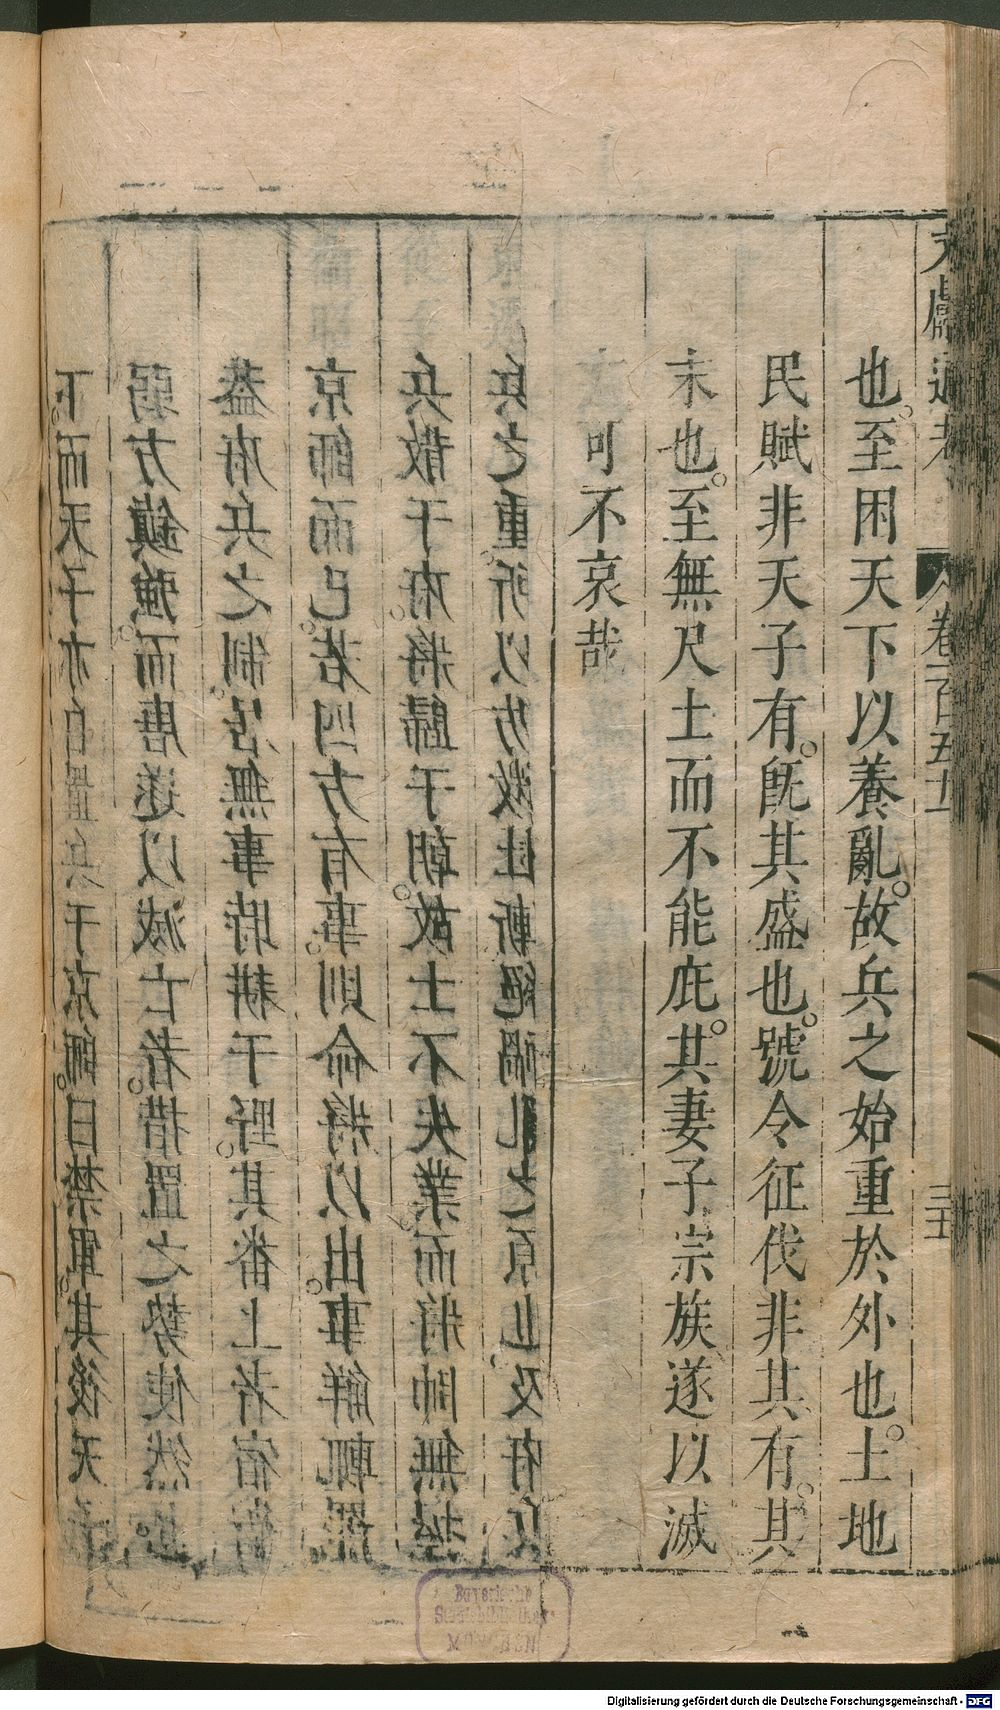 文獻通考 卷一百五十一
也。至困天下以養亂。故兵之始重於外也。土地
民賦非天子有。旣其盛也。號令征伐非其有。其
末也。至無尺土而不能庇。其妻子宗族遂以滅
可不哀哉
下。而天子亦自置兵于京師。曰禁軍。其後天
弱方鎮強。而唐遂以滅亡者。措置之勢使然
葢府兵之制。居無事時耕于野。其番上者宿衛
京師而已。若四方有事。則命將以出。事解輒罷
兵散于府。將歸于朝。故士不失業。而將帥無握
兵之重。所以防微杜漸絕禍乱之原也。及府兵
Bayerische
Staatsbibliothek
MÜNCHEN
Digitalisierung gefördert durch die Deutsche Forschungsgemeinschaft - DFG